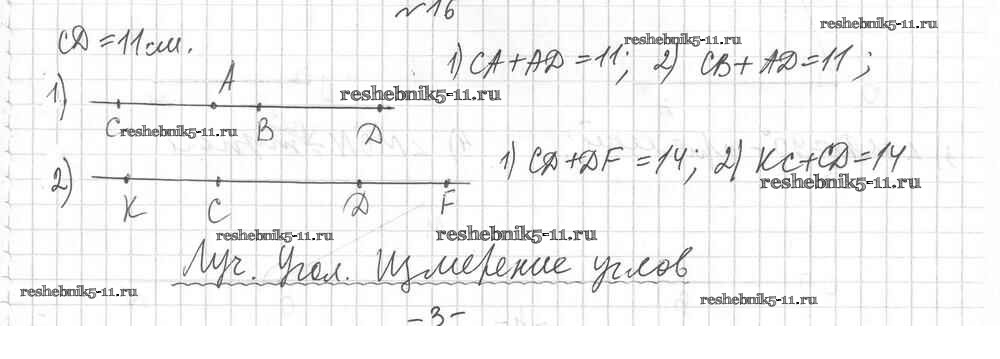 №16
reshebnik5-11.ru
CD = 11 см.
reshebnik5-11.ru
1) CA + AD = 11; 2) CB + AD = 11;
1)
A
reshebnik5-11.ru
C reshebnik5-11.ru B D
2)
1) CD + DF = 14; 2) KC + CD = 14
reshebnik5-11.ru
K C D F
reshebnik5-11.ru
reshebnik5-11.ru
Луч. Угол. Измерение углов
reshebnik5-11.ru
reshebnik5-11.ru
-3-